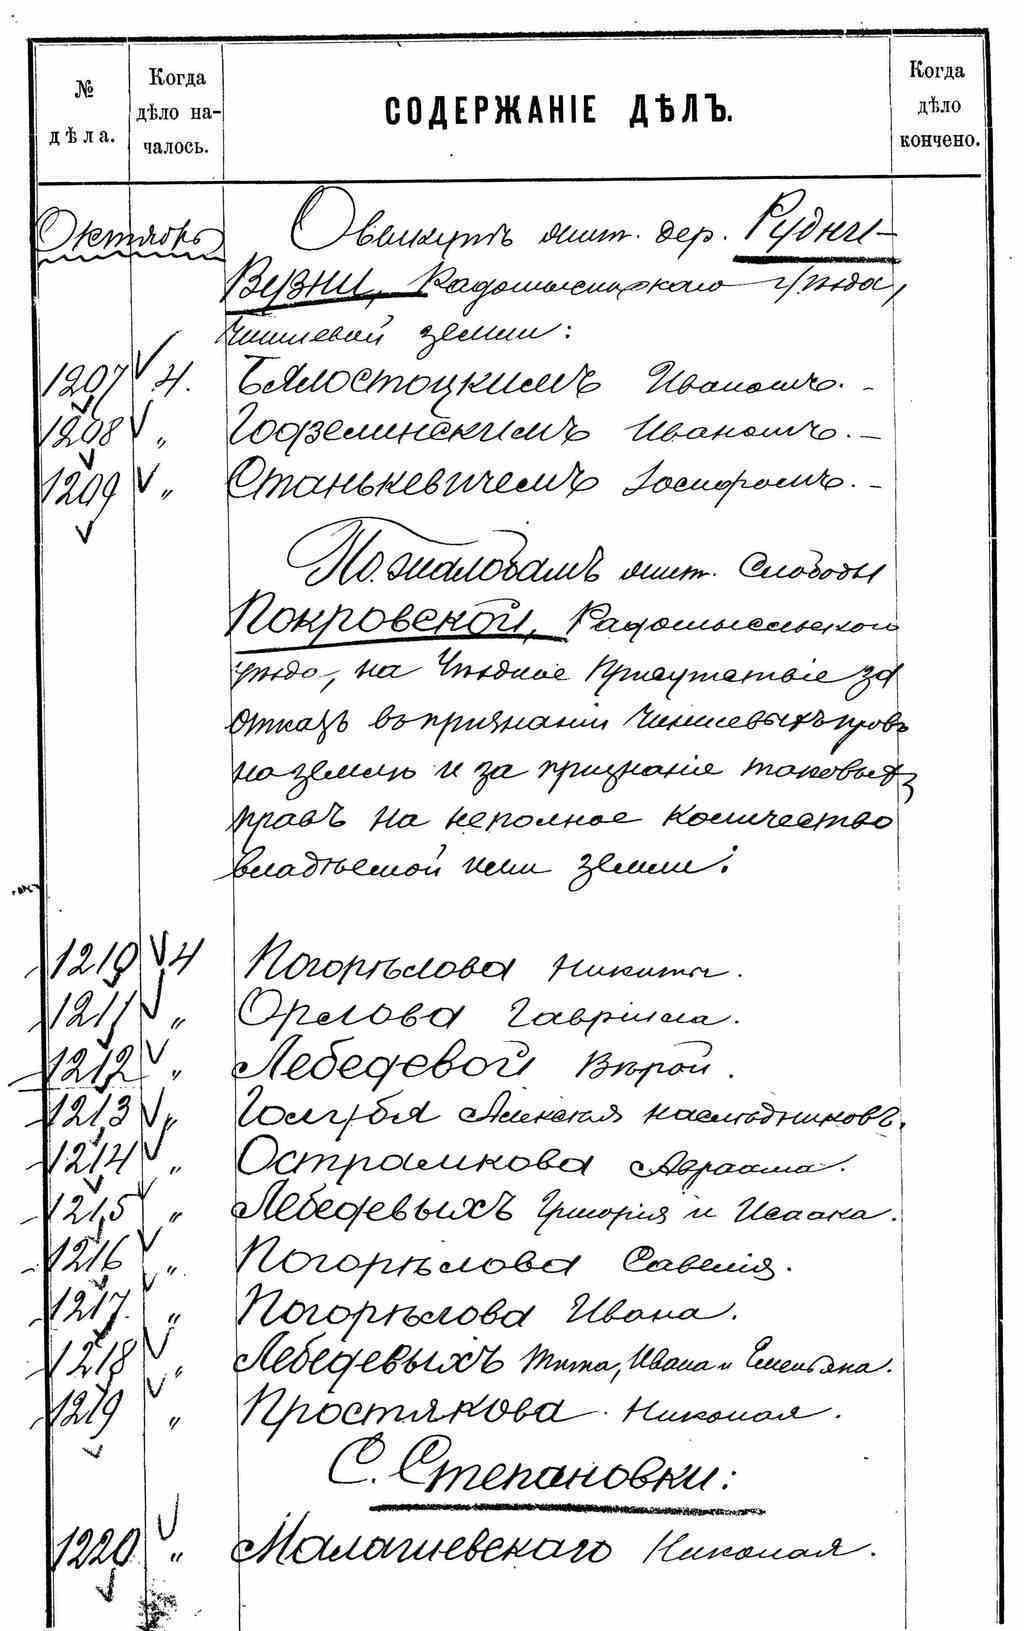 № дѣла.
Когда дѣло началось.
СОДЕРЖАНІЕ ДѢЛЪ.
Когда дѣло кончено.
Октябрь
О выкупѣ жит. дер. Рудни-
Вузни, Радомысльскаго уѣзда,
чиншевой земли:
1207 4. Бялостоцкимъ Иваномъ. –
1208 „ Годземинскимъ Иваномъ. –
1209 „ Станькевичемъ Іосифомъ. –
По жалобамъ жит. Слободы
Покровской, Радомысльскаго
уѣзда, на Уѣздное Присутствіе за
отказъ въ признаніи чиншевыхъ правъ
на землю и за признаніе таковыхъ
правъ на неполное количество
владѣемой ими земли:
1210 4 Погорѣлова Никиты.
1211 „ Орлова Гавріила.
1212 „ Лебедевой Вѣрой.
1213 „ Голубя Алексѣя наслѣдниковъ.
1214 „ Острамкова Авраама.
1215 „ Лебедевыхъ Григорія и Исаака.
1216 „ Погорѣлова Савелія.
1217. „ Погорѣлова Ивана.
1218 „ Лебедевыхъ Тита, Ивана и Емельяна.
1219 „ Простякова Николая.
С. Степановки:
1220 „ Малашевскаго Николая.